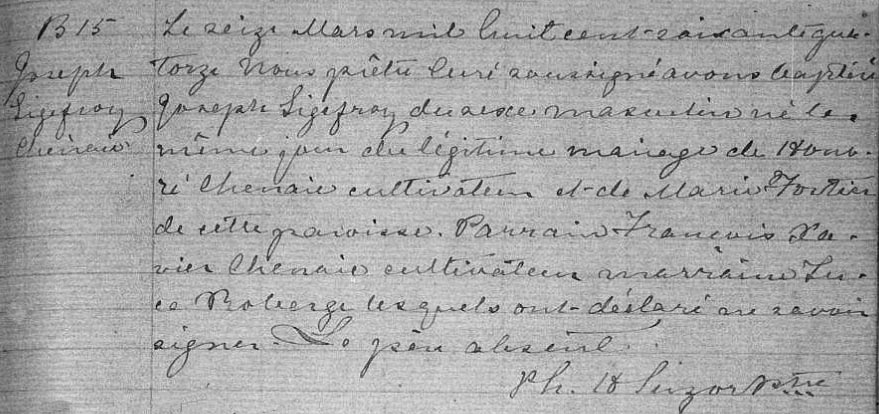 B 15
Joseph
Sigefroy
Chenaie
Le seize Mars mil huit cent-soixante qua-
torze Nous prêtre Curé soussigné avons baptisé
Joseph Sigefroy du sexe masculin né le
même jour du légitime mariage de Hono-
ré Chenaie cultivateur et de Marie Fortier
de cette paroisse. Parrain François Xa-
vier Chenaie cultivateur marraine Lu-
ce Roberge lesquels ont déclaré ne savoir
signer. Le père absent.
Ph. H Suzor Ptre